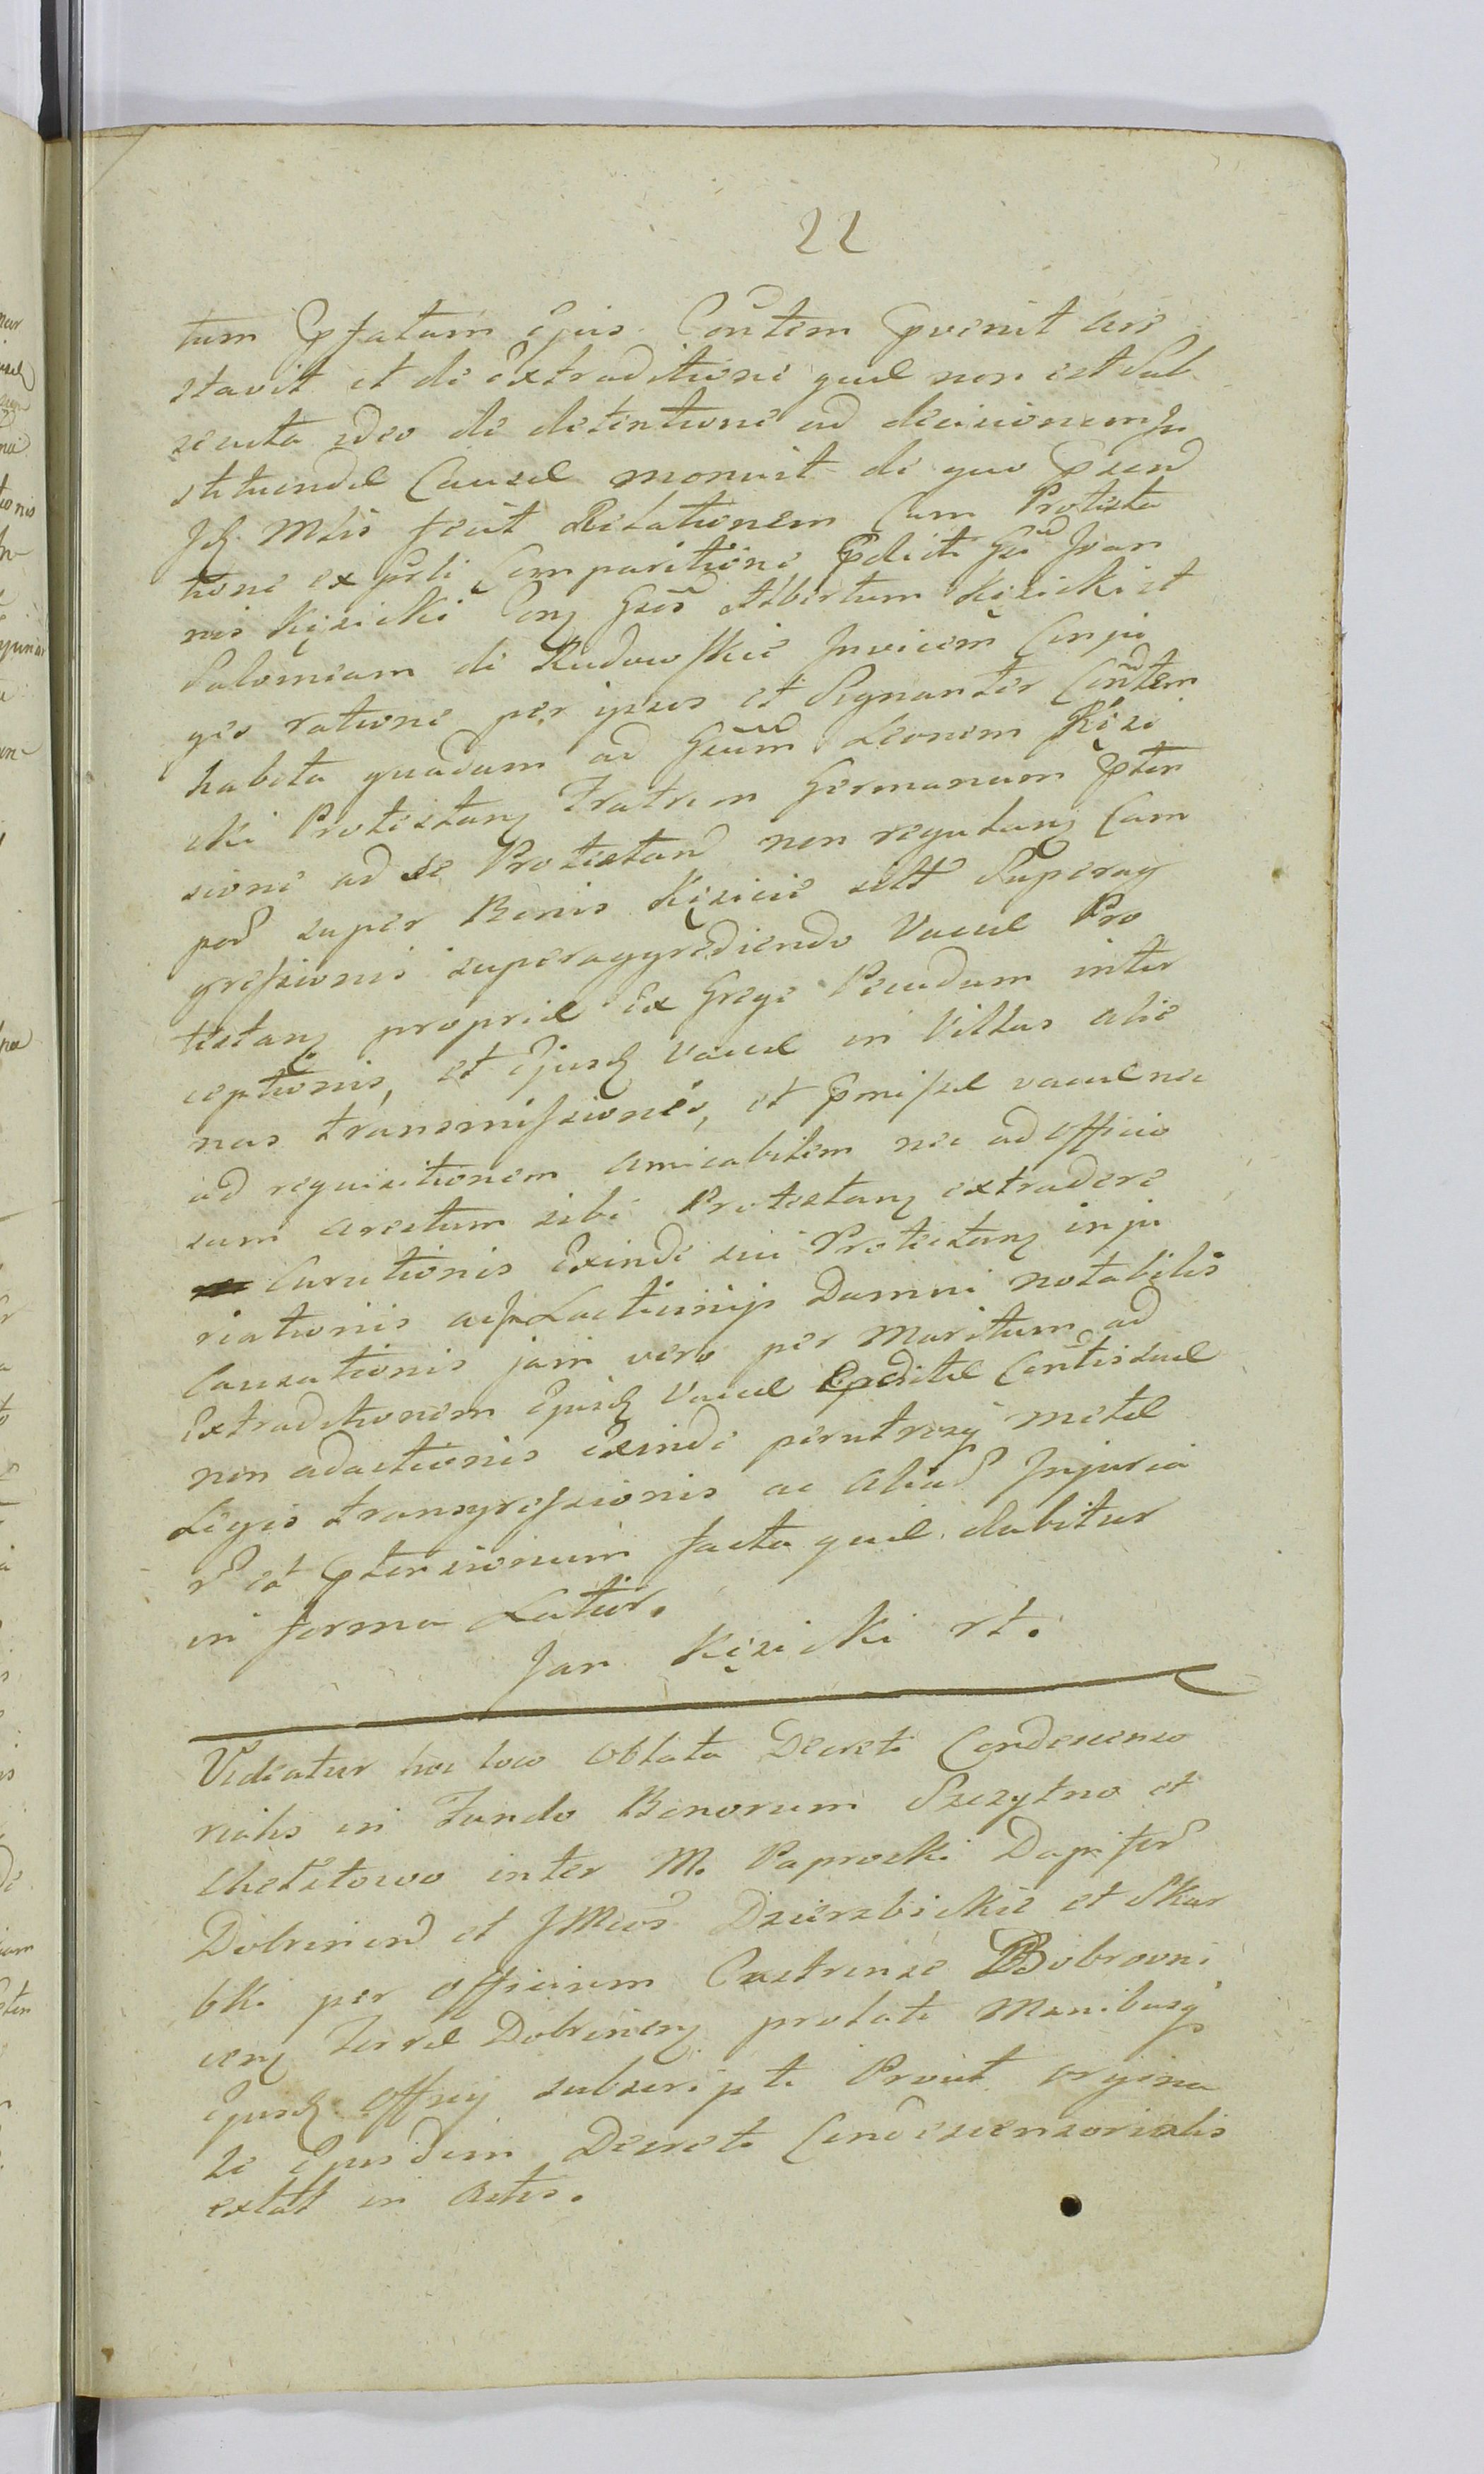 22
tum Pfatam Ejus Contem Pvenit are
stavit et de Extraditione quæ non est Sub
secuta ideo de detentione ad decisionem In
stituendæ Causæ monuit de quo Psend
fecit Relationem Cum Protesta
tione ex Comparitione Pdicti Gsi Joan
nis Kęsicki Gsos Albertum Kęsicki et
Salomeam de Rudowskie Invicem Conju
ges ratione per ipsos et Signanter Contem
habita quadam ad Gsum Leonem Kęsi
cki Protestan Fratrem Germanum Pten
sione ad se Protestand non regulan Cam
pod super Bonis Kęsicie Superag
gressionis superaggrediendo Vaccæ Pro
testan propriæ Ex Grege Pecudum inter
ceptionis, et Ejusd Vaccæ in Villas alie
nas transmissiones, et Pmissæ vaccæ nec
ad requisitionem amicabilem nec ad officio
sum arestum sibi Protestan extradere
Curationis Exinde sui Protestan inju
riationis Lacticinijs Damni notabilis
Causationis jam vero per Maritum ad
Extraditionem Ejusd Vaccæ Pditæ Contissæ
non adactionis Exinde perutrosq metæ
Legis transgressionis ac Aliad Injuria
r et Ptensionum facta quæ dabitur
in forma Latior.
Jan Kęsicki
Videatur hoc loco Oblata Decreti Condescenso
rialis in Fundo Bonorum Szczytno et
Chełstowo inter M. Paprocki Dapifer
Dobrinen et Dzierzbickie et Skar
bki per Officium Castrense Bobrovni
cen Terræ Dobrinen prolati Manibusq
Ejusd Officij subscripti Prout origina
le Ejusdem Decreti Condescensorialis
extat in Actis.